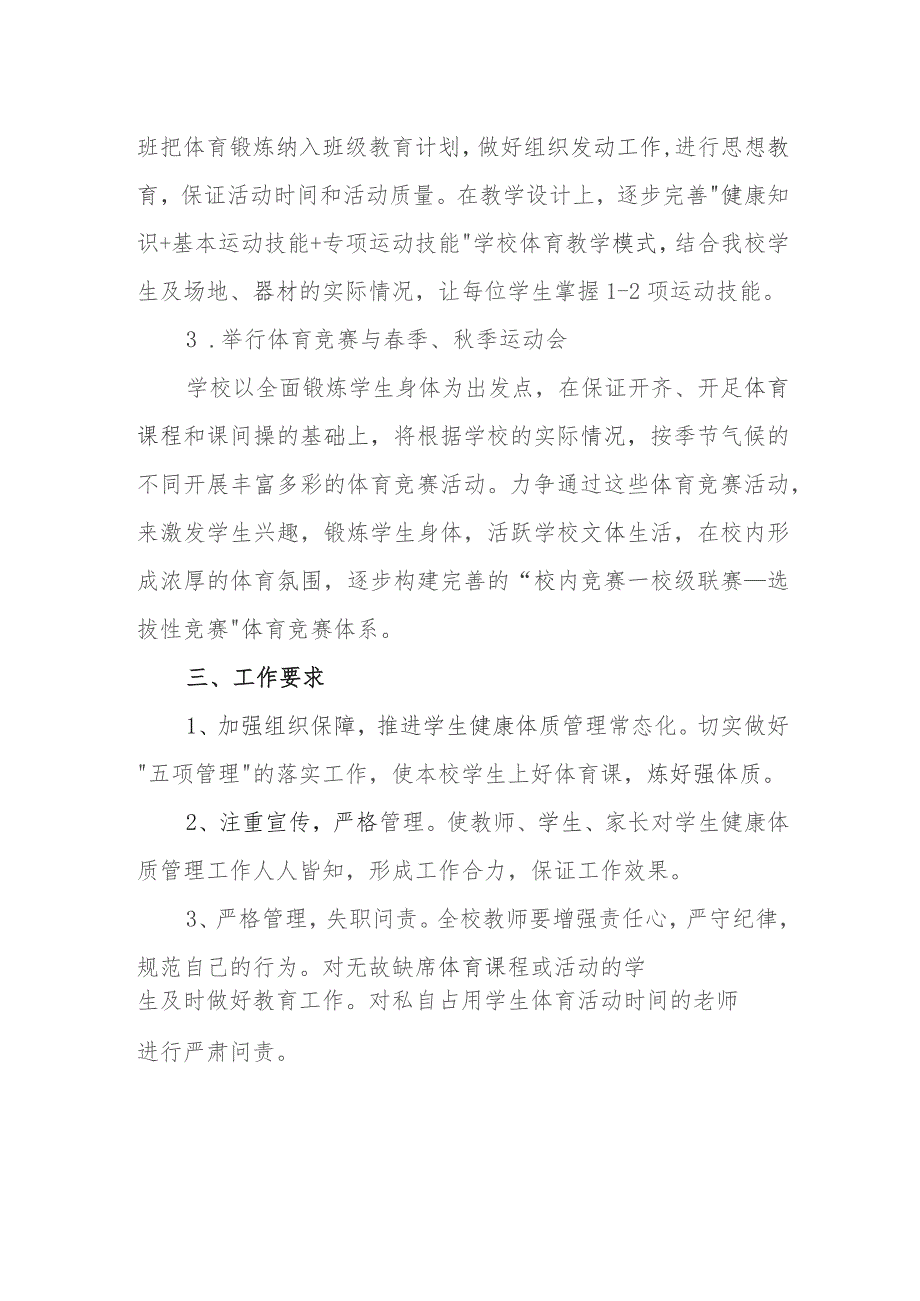 班把体育锻炼纳入班级教育计划，做好组织发动工作,进行思想教
育，保证活动时间和活动质量。在教学设计上，逐步完善"健康知
识+基本运动技能+专项运动技能"学校体育教学模式，结合我校学
生及场地、器材的实际情况，让每位学生掌握1-2项运动技能。
3 .举行体育竞赛与春季、秋季运动会
学校以全面锻炼学生身体为出发点，在保证开齐、开足体育
课程和课间操的基础上，将根据学校的实际情况，按季节气候的
不同开展丰富多彩的体育竞赛活动。力争通过这些体育竞赛活动，
来激发学生兴趣，锻炼学生身体，活跃学校文体生活，在校内形
成浓厚的体育氛围，逐步构建完善的“校内竞赛一校级联赛—选
拔性竞赛"体育竞赛体系。
三、工作要求
1、加强组织保障，推进学生健康体质管理常态化。切实做好
"五项管理"的落实工作，使本校学生上好体育课，炼好强体质。
2、注重宣传，严格管理。使教师、学生、家长对学生健康体
质管理工作人人皆知，形成工作合力，保证工作效果。
3、严格管理，失职问责。全校教师要增强责任心，严守纪律，
规范自己的行为。对无故缺席体育课程或活动的学
生及时做好教育工作。对私自占用学生体育活动时间的老师
进行严肃问责。